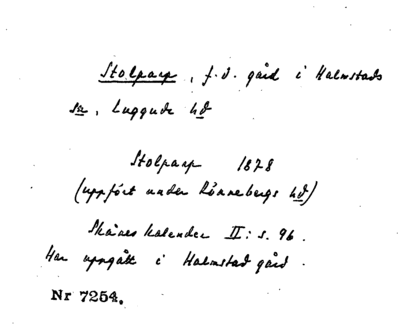 Stolparp, f.d. gård i Halmstads
sn, Luggude hd
Stolparp 1878
(uppfört under Rönnebergs hd)
Skånes kalender II: s. 96.
Har uppgått i Halmstad gård.
Nr 7254.